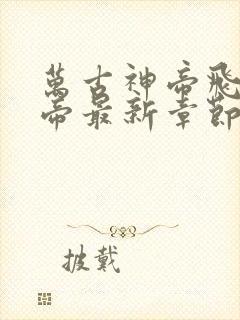 萬古神帝飛
帝最新章節
披戴